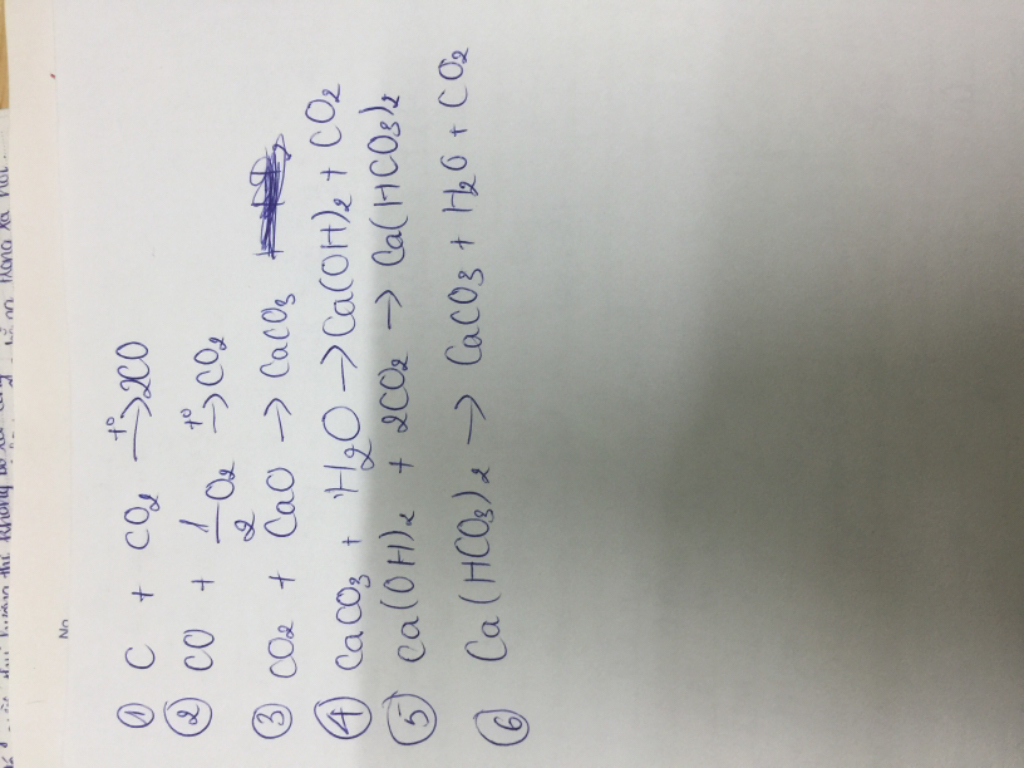 No
① C + CO₂ --t°--> 2CO
② CO + 1/2 O₂ --t°--> CO₂
③ CO₂ + CaO → CaCO₃
④ CaCO₃ + H₂O → Ca(OH)₂ + CO₂
⑤ Ca(OH)₂ + 2CO₂ → Ca(HCO₃)₂
⑥ Ca(HCO₃)₂ → CaCO₃ + H₂O + CO₂